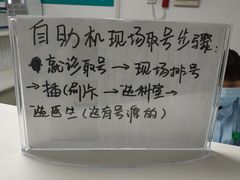 自助机现场取号步骤:
就诊取号→现场排号
→插(刷)卡→选科室→
选医生(选有号源的)